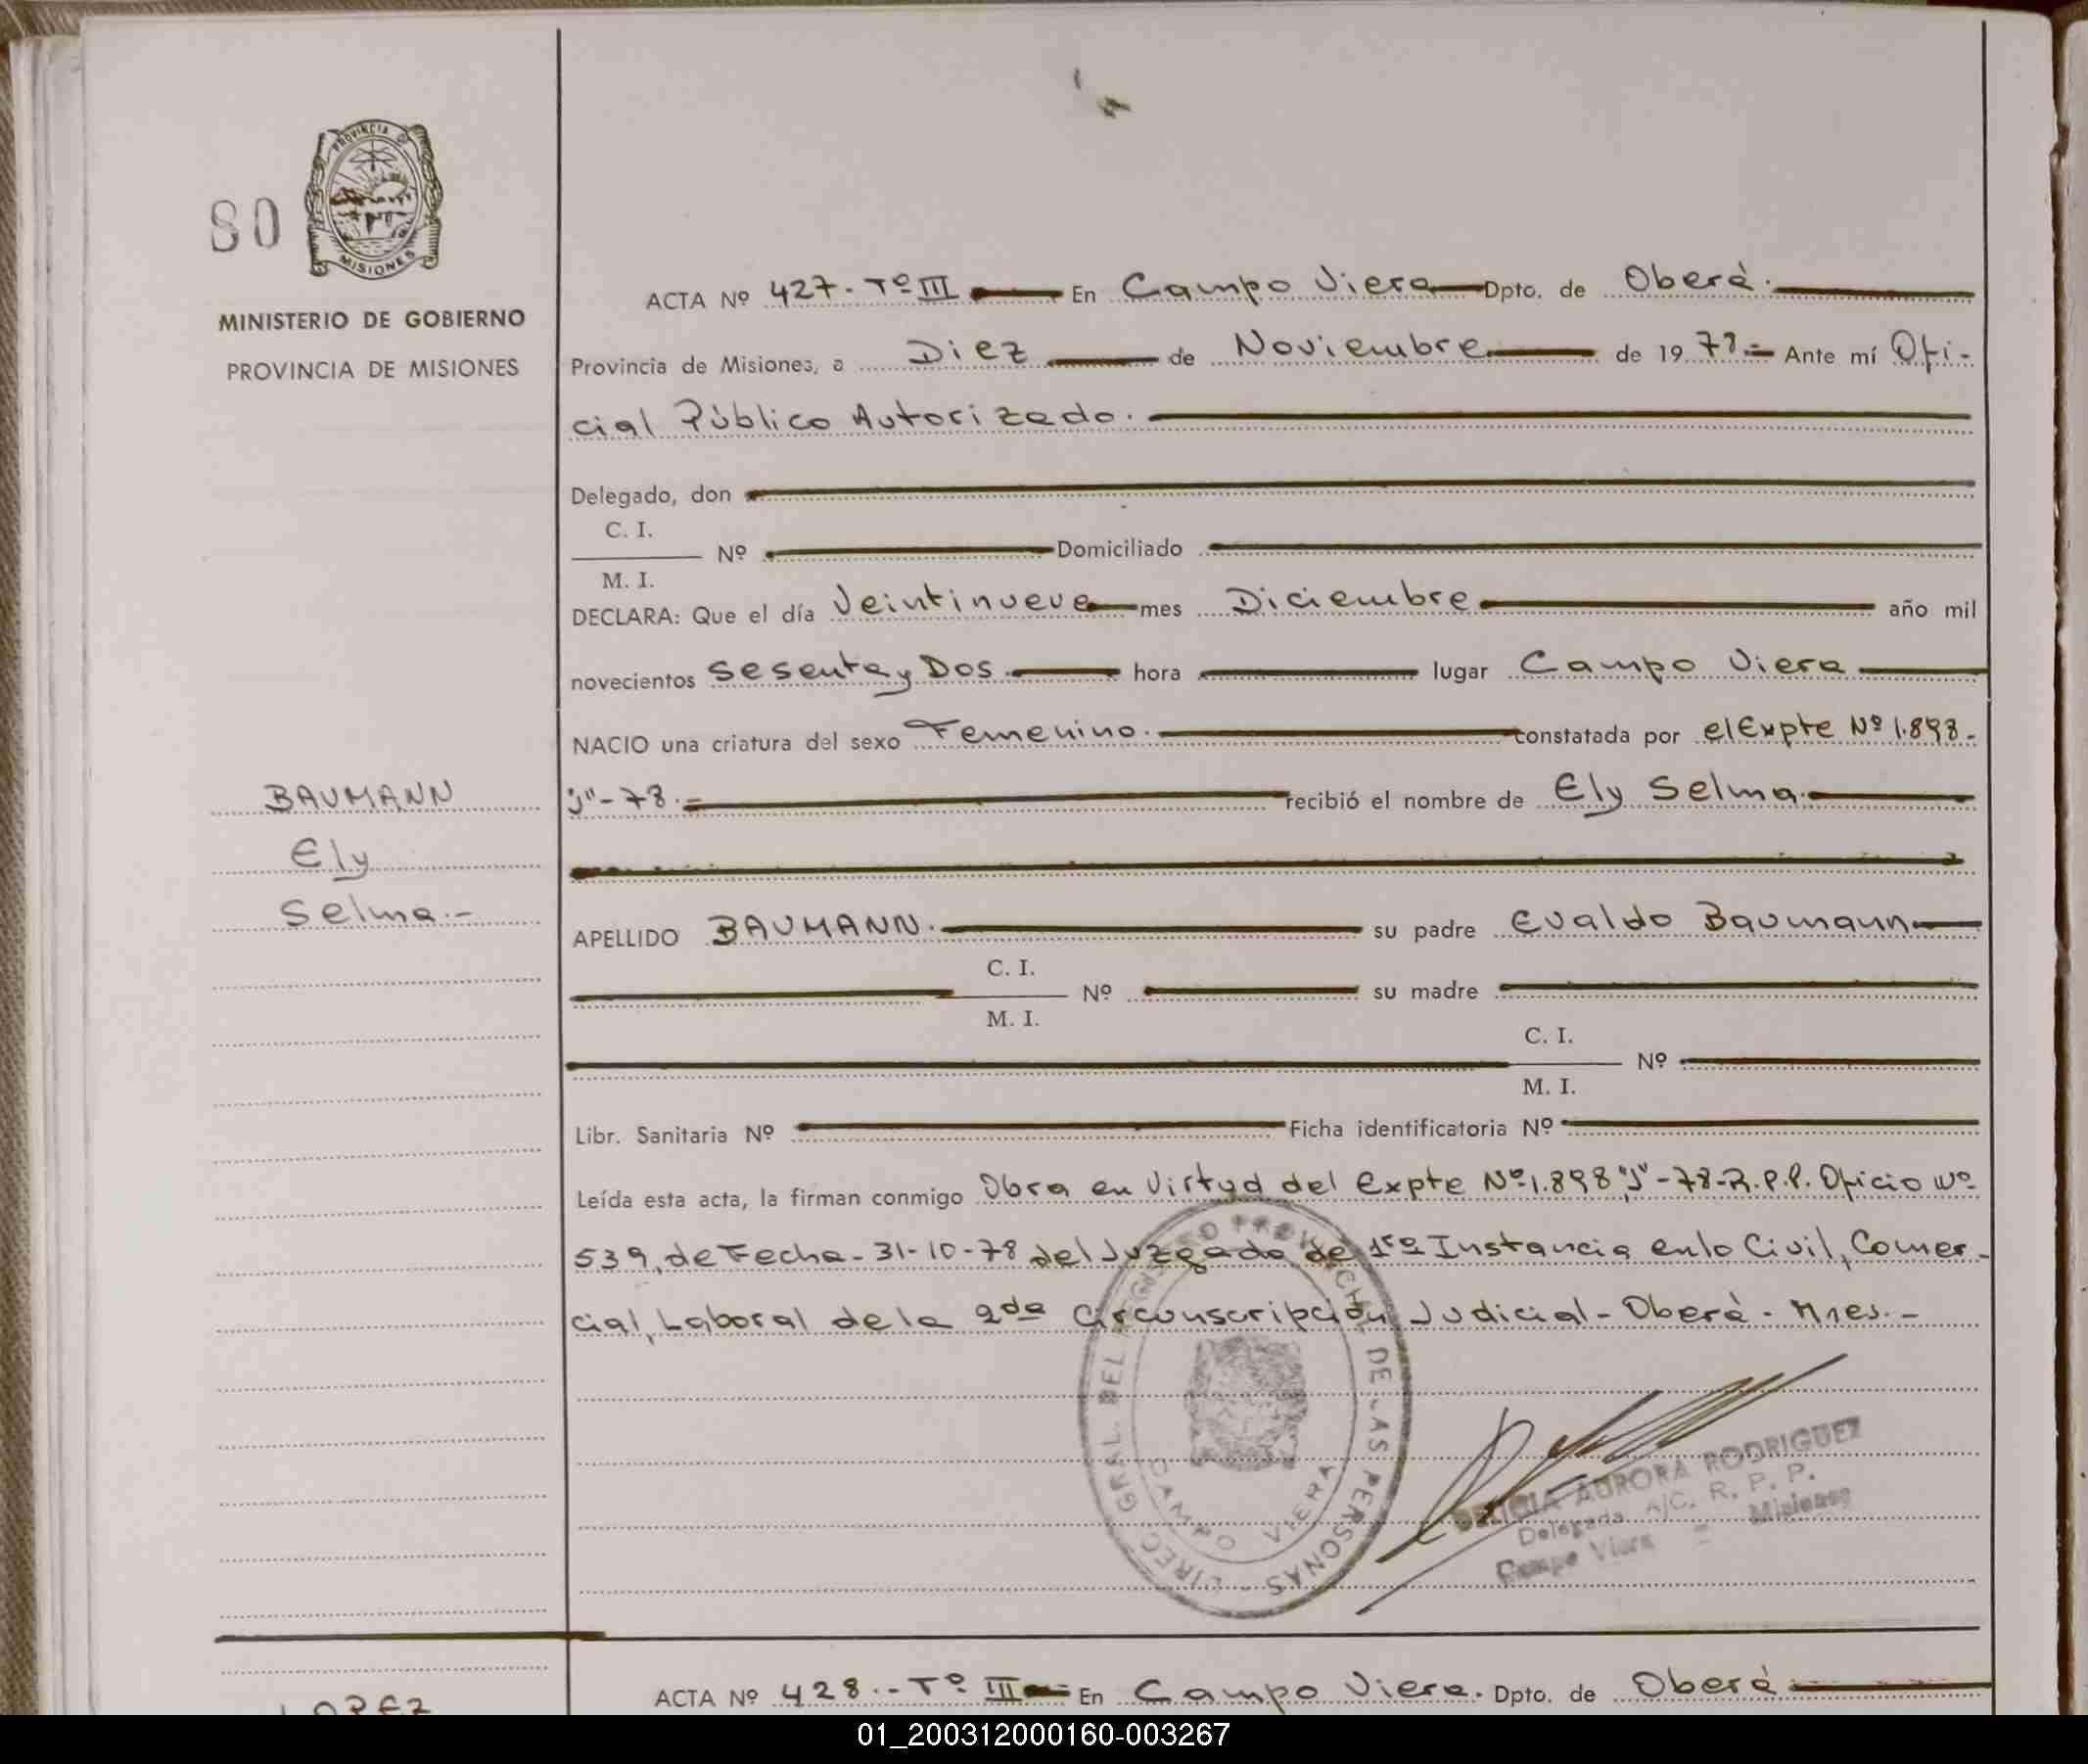 80
PROVINCIA DE
MISIONES
MINISTERIO DE GOBIERNO
PROVINCIA DE MISIONES
ACTA Nº 427.-Tº III En Campo Viera Dpto. de Oberá.
Provincia de Misiones, a Diez de Noviembre de 1978.- Ante mí Ofi-
cial Público Autorizado.
Delegado, don
C. I.
Nº Domiciliado
M. I.
DECLARA: Que el día Veintinueve mes Diciembre año mil
novecientos Sesenta y Dos. hora lugar Campo Viera
NACIO una criatura del sexo Femenino. constatada por el Expte Nº 1.898-
"J"-78.- recibió el nombre de Ely Selma.
BAUMANN
Ely
Selma.-
APELLIDO BAUMANN. su padre Evaldo Baumann
C. I.
Nº su madre
M. I.
C. I.
Nº
M. I.
Libr. Sanitaria Nº Ficha identificatoria Nº
Leída esta acta, la firman conmigo Obra en Virtud del Expte Nº 1.898"J"-78-R.P.P. Oficio Nº
539, de Fecha-31-10-78 del Juzgado de 1ra Instancia en lo Civil, Comer-
cial, Laboral de la 2da Circunscripción Judicial-Oberá-Mnes.-
DIREC. GRAL. DEL REGISTRO PROVINCIAL DE LAS PERSONAS -
CAMPO VIERA
AURORA RODRIGUEZ
Delegada A/C. R. P. P.
Campo Viera - Misiones
LOPEZ
ACTA Nº 428.-Tº III En Campo Viera. Dpto. de Oberá
01_200312000160-003267